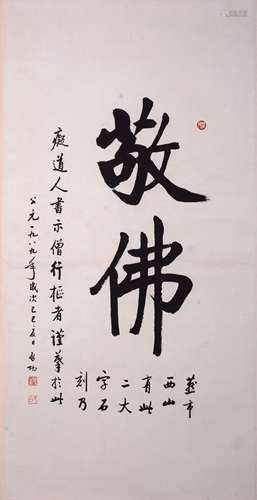 敬佛
燕市
西山
有此
二大
字石
刻乃
癡道人書示僧行樞者謹摹於此
公元一九八九年歲次己巳夏日 启功